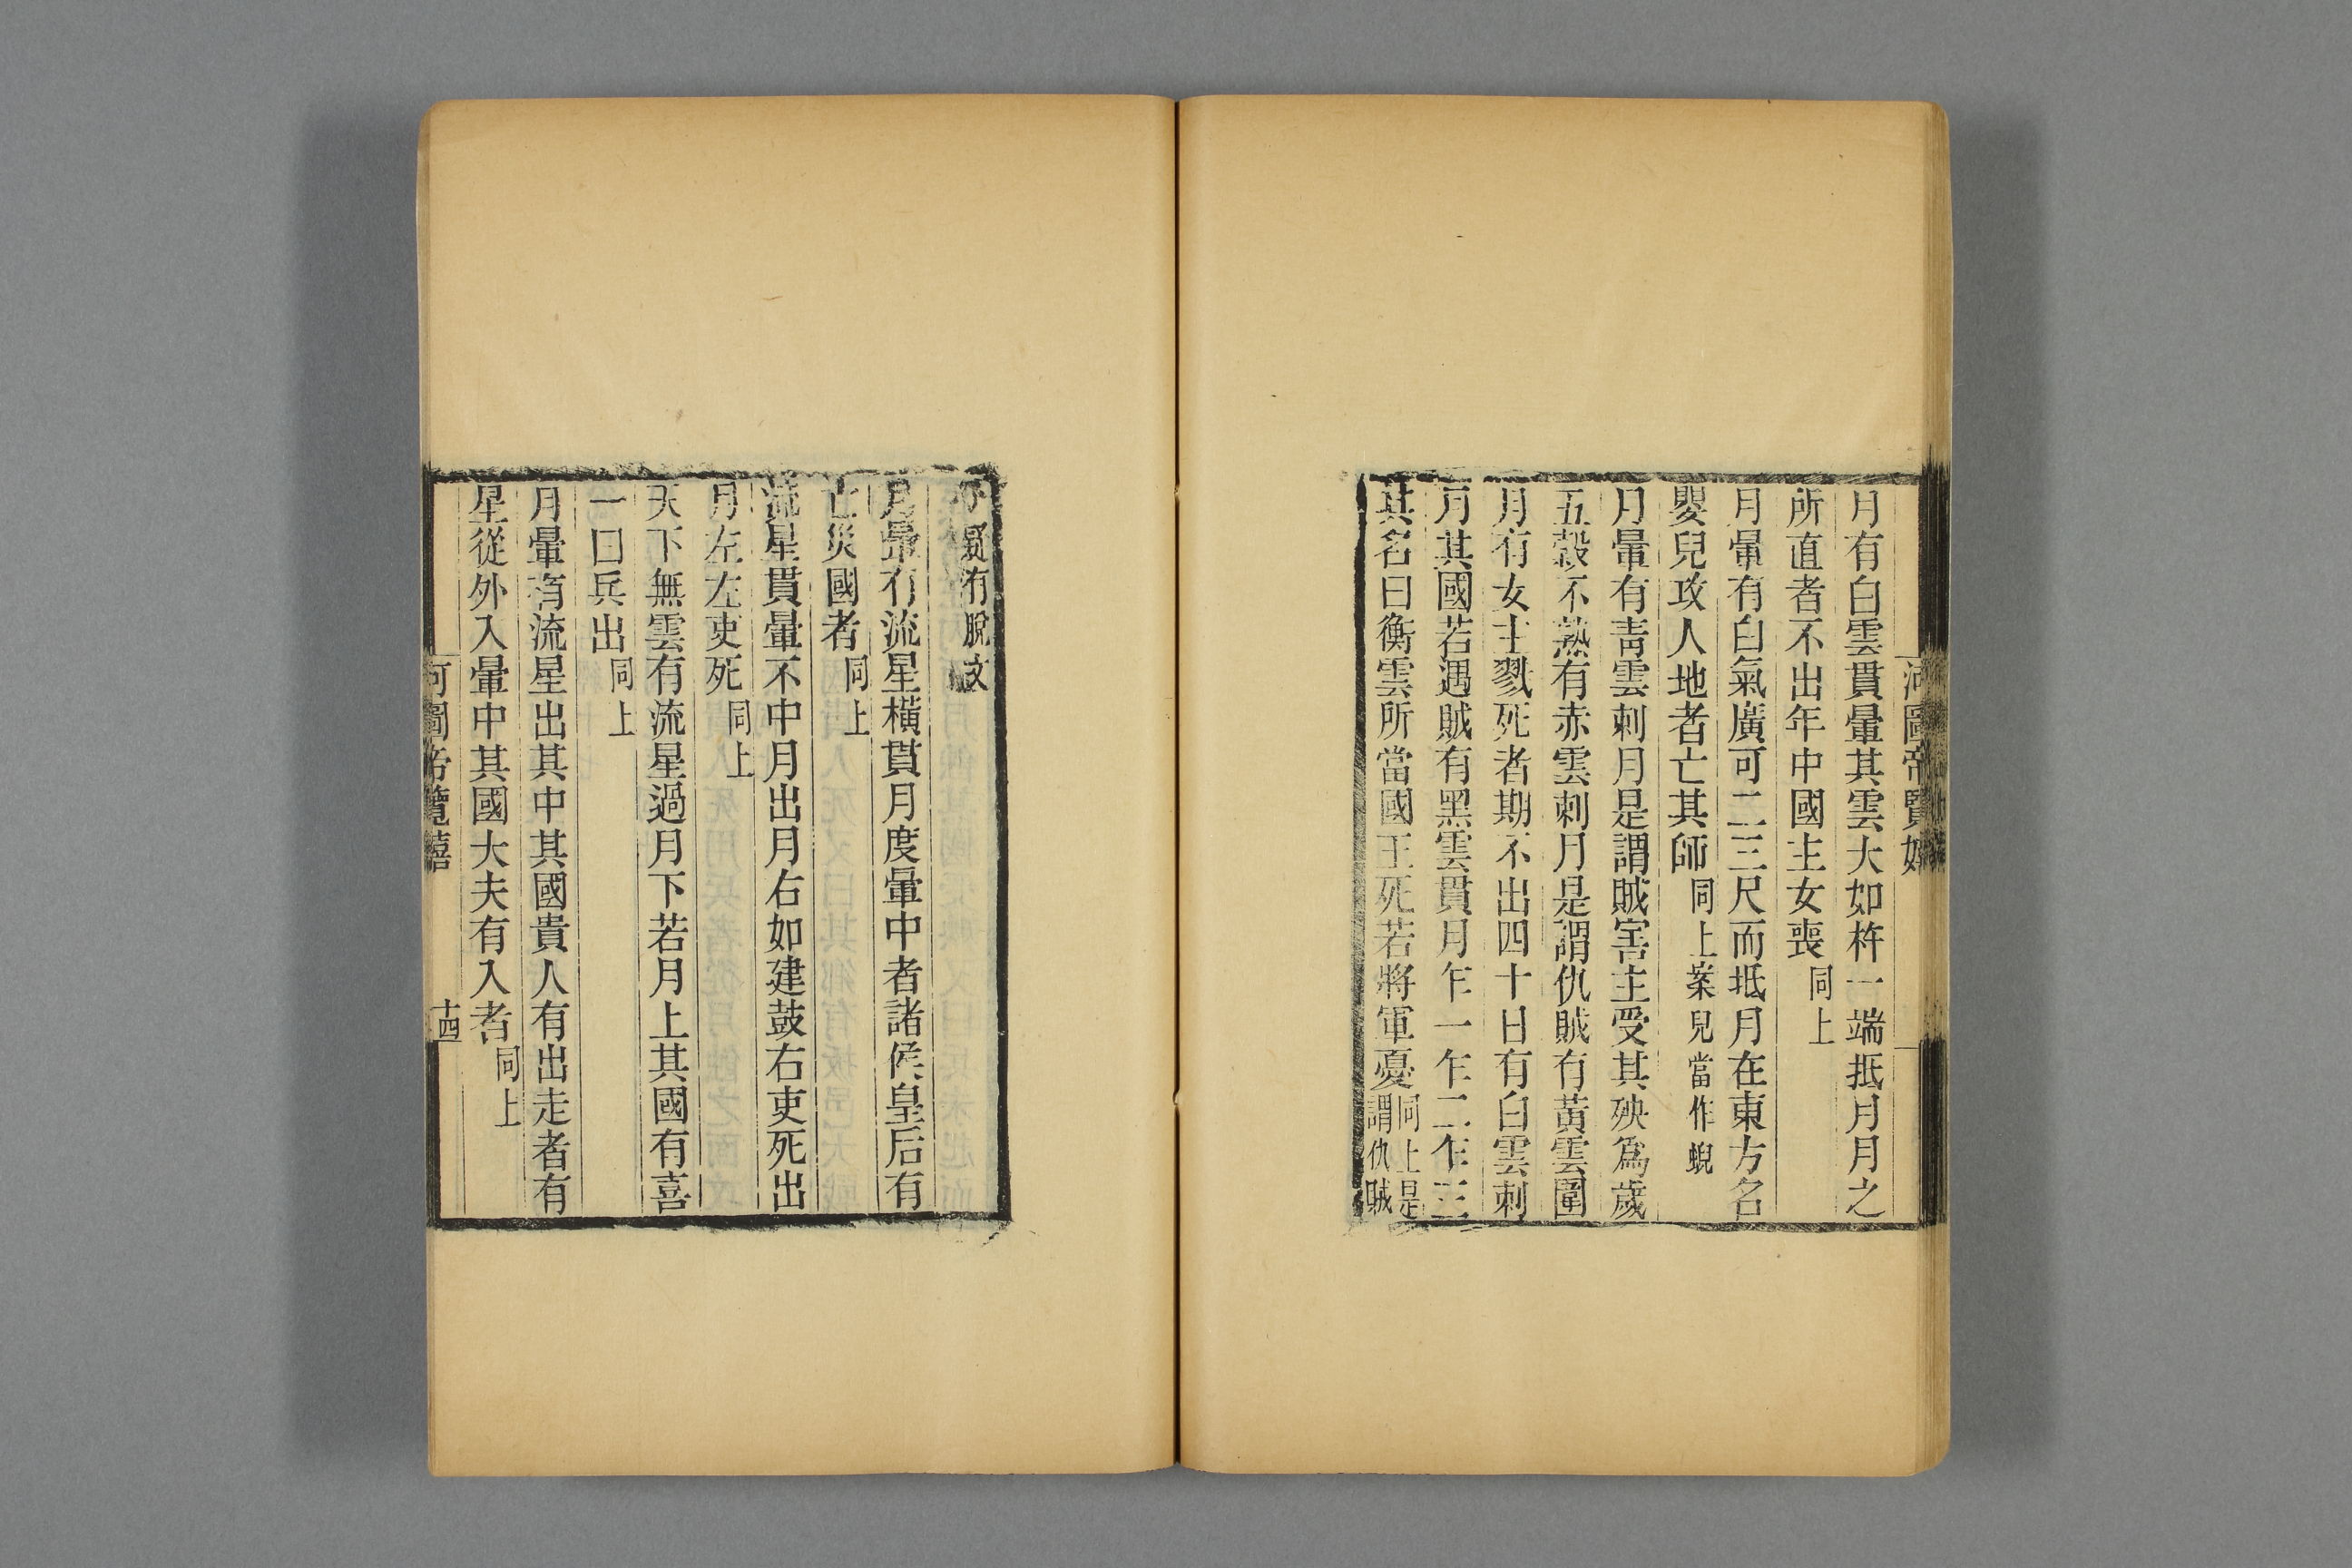 月有白雲貫暈其雲大如杵一端抵月月之
所直者不出年中國主女喪同上
月暈有白氣廣可二三尺而抵月在東方名
嬰兒攻人地者亡其師同上案兒當作蜺
月暈有青雲刺月是謂賊害主受其殃爲歲
五穀不熟有赤雲刺月是謂仇賊有黃雲圍
月有女主戮死者期不出四十日有白雲刺
月其國若遇賊有黑雲貫月乍一乍二乍三
其名曰衡雲所當國王死若將軍憂同上是謂仇賊
下疑有脫文
月暈有流星橫貫月度暈中者諸侯皇后有
亡災國者同上
流星貫暈不中月出月右如建鼓右吏死出
月左左吏死同上
天下無雲有流星過月下若月上其國有喜
一曰兵出同上
月暈有流星出其中其國貴人有出走者有
星從外入暈中其國大夫有入者同上
河圖帝覽嬉
十四